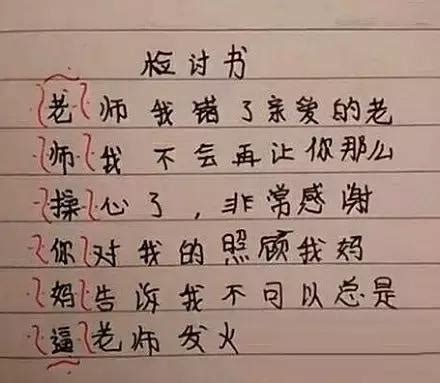 检讨书
老师我错了亲爱的老
师我不会再让你那么
操心了，非常感谢
你对我的照顾我妈
妈告诉我不可以总是
逼老师发火